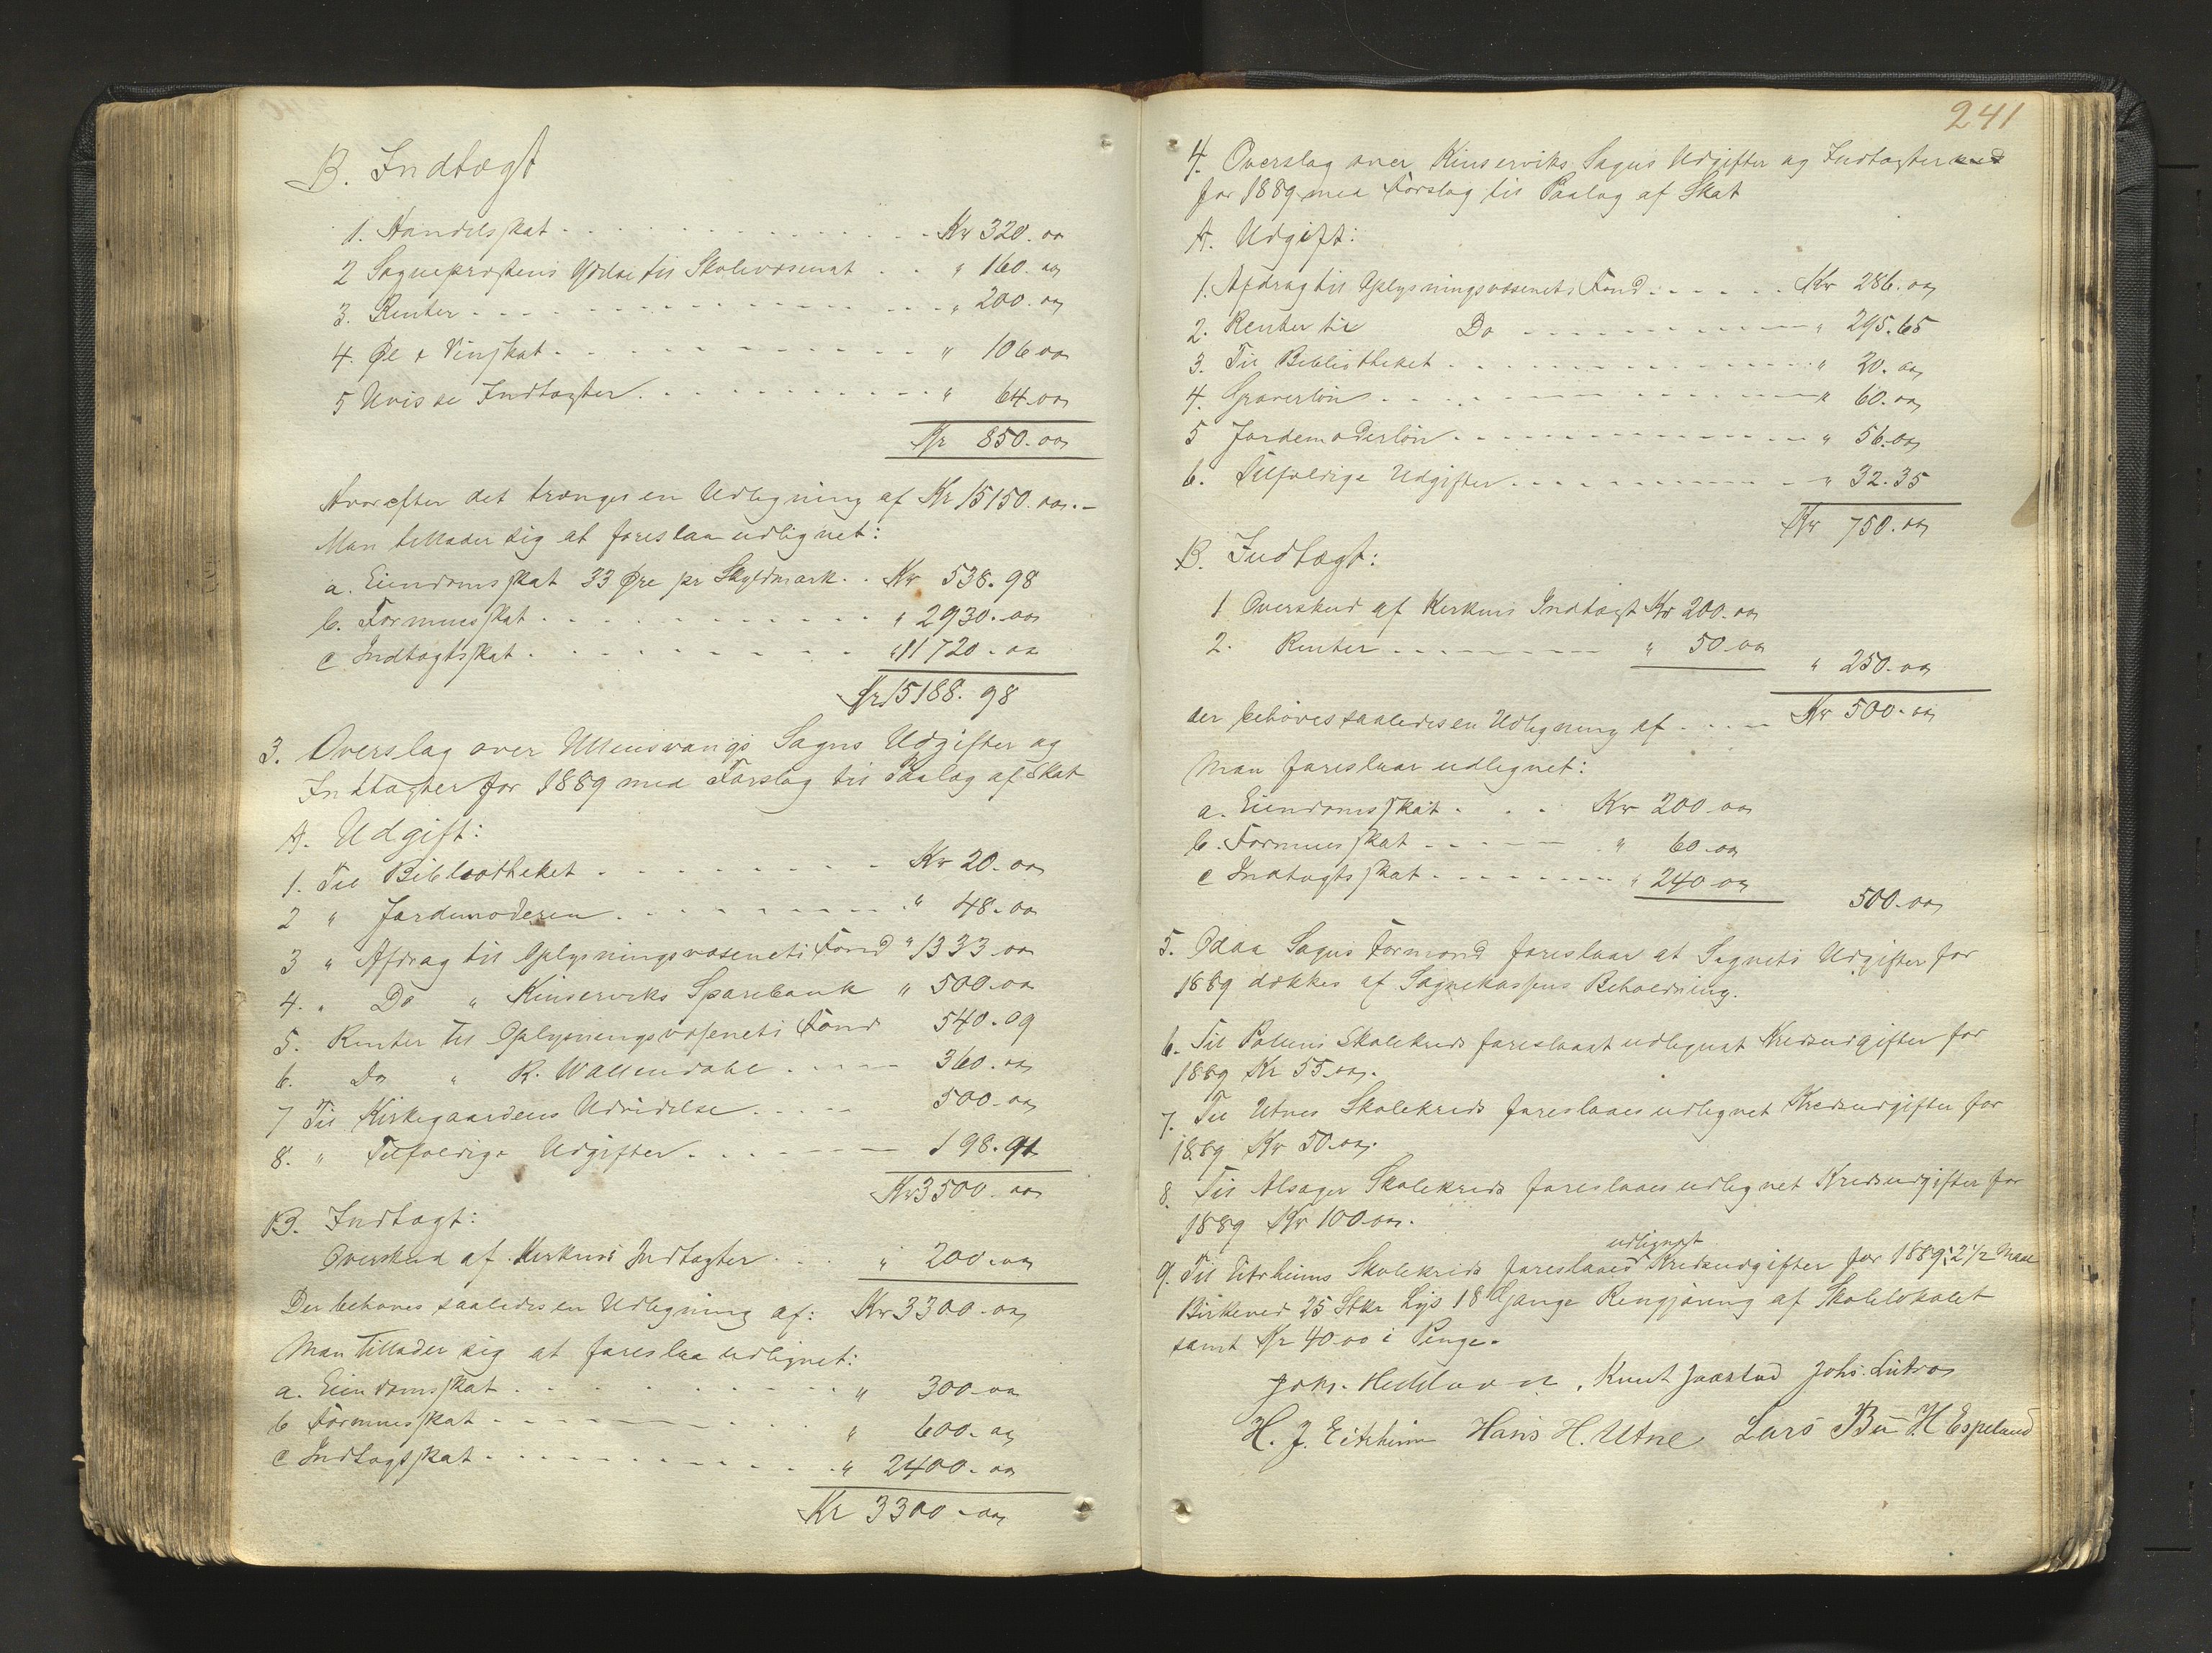 B. Indtægt
1. Handelsskat - - - Kr 320.00
2 Sognepræstens Ydelse til Skolevæsenet - - " 160.00
3. Renter - - - " 200.00
4. Øl & Vinskat - - - " 106.00
5 Uvisse Indtægter - - - " 64.00
Kr 850.00
Hvorefter det trænges en Udligning af Kr 15150.00.-
Man tillader sig at foreslaa udlignet:
a. Eiendomsskat 33 Øre pr Skyldmark. . Kr 538.98
b. Formuesskat - - - " 2930.00
c Indtægtsskat - - - " 11720.00
Kr 15188.98
3. Overslag over Ullensvangs Sogns Udgifter og
Indtægter for 1889 med Forslag til Paalæg af Skat
A. Udgift:
1. Til Bibliotheket - - - Kr 20.00
2 " Jordemoderen - - - " 48.00
3 " Afdrag til Oplysningsvæsenets Fond " 1333.00
4. " Do " Kinserviks Sparebank " 500.00
5. Renter til Oplysningsvæsenets Fond 540.09
6. Do " R. Wallendahl - - - 360.00
7 Til Kirkegaardens Udvidelse - - - 500.00
8. " Tilfældige Udgifter - - - 198.91
Kr 3500.00
B. Indtægt:
Overskud af Kirkens Indtægter - - - " 200.00
Der behøves saaledes en Udligning af: Kr 3300.00
Man tillader sig at foreslaa udlignet:
a. Eiendomsskat - - - " 300.00
b Formuesskat - - - " 600.00
c Indtægtsskat - - - " 2400.00
Kr 3300.00
241
4. Overslag over Kinserviks Sogns Udgifter og Indtægter
for 1889 med Forslag til Paalæg af Skat
A. Udgift:
1. Afdrag til Oplysningsvæsenets Fond - - - Kr 286.00
2. Renter til Do - - - " 295.65
3. Til Bibliotheket - - - " 20.00
4. Graverløn - - - " 60.00
5 Jordemoderløn - - - " 56.00
6. Tilfældige Udgifter - - - " 32.35
Kr 750.00
B. Indtægt:
1 Overskud af Kirkens Indtægt Kr 200.00
2. Renter - - - " 50.00
" 250.00
der behøves saaledes en Udligning af - - - Kr 500.00
Man foreslaar udlignet:
a. Eiendomsskat - - - Kr 200.00
b. Formuesskat - - - " 60.00
c Indtægtsskat - - - " 240.00
500.00
5. Odda Sogns Formand foreslaar at Sognets Udgifter for
1889 dækkes af Sognekassens Beholdning.
6. Til Pollens Skolekreds foreslaaet udlignet Kredsudgifter for
1889 Kr 55.00.
7. Til Utnes Skolekreds foreslaaes udlignet Kredsudgifter for
1889 Kr 50.00.
8. Til Alsager Skolekreds foreslaaes udlignet Kredsudgifter for
1889 Kr 100.00.
udlignet
9. Til Eitrheims Skolekreds foreslaaes Kredsudgifter for 1889: 2 1/2 Maal
Birkeved 25 Stkr Lys 18 Gange Rengjøring af Skolelokalet
samt Kr 40.00 i Penge.
Johs. Knut Jaastad Johs. Lutro
H. J. Eitrheim Hans H. Utne Lars Bu H Espeland